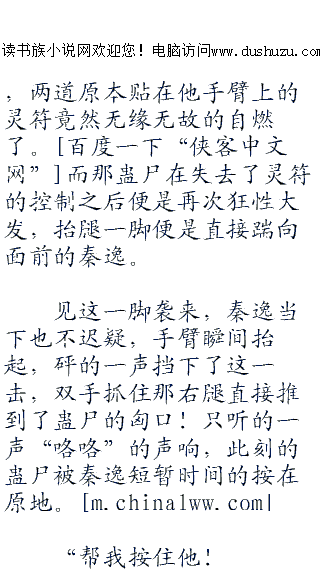 读书族小说网欢迎您！电脑访问www.dushuzu.com
，两道原本贴在他手臂上的
灵符竟然无缘无故的自燃
了。[百度一下“侠客中文
网”]而那蛊尸在失去了灵符
的控制之后便是再次狂性大
发，抬腿一脚便是直接踹向
面前的秦逸。
见这一脚袭来，秦逸当
下也不迟疑，手臂瞬间抬
起，砰的一声挡下了这一
击，双手抓住那右腿直接推
到了蛊尸的匈口！只听的一
声“咯咯”的声响，此刻的
蛊尸被秦逸短暂时间的按在
原地。[m.chinalww.com|
“帮我按住他！